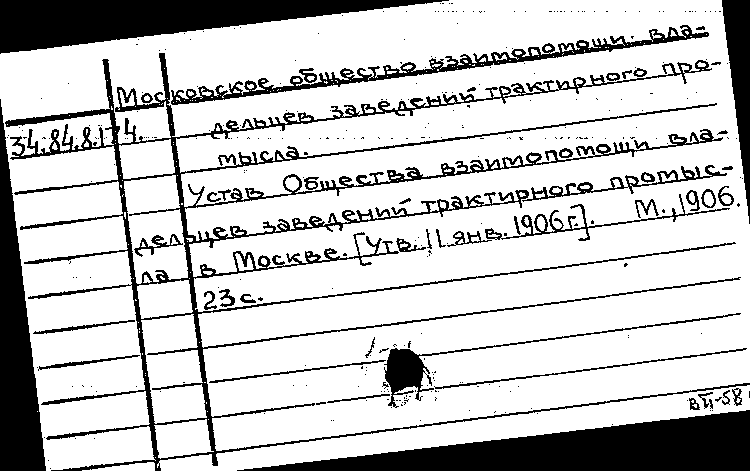 Московское общество взаимопомощи вла-
34.84.8.174. дельцев заведений трактирного про-
мысла.
Устав Общества взаимопомощи вла-
дельцев заведений трактирного промыс-
ла в Москве. [Утв. 11 янв. 1906 г.]. М., 1906.
23 с.